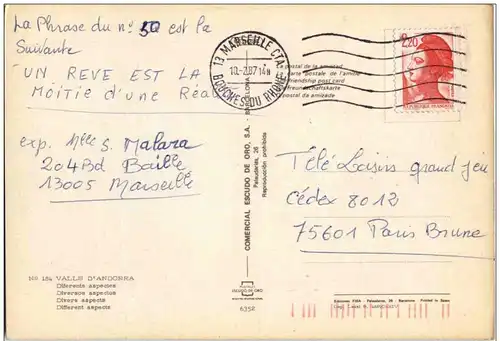 La Phrase du nº 50 est la
Suivante
"UN REVE EST LA
Moitié d'une Réa
exp. Mlle S. Malara
204 Bd Baille
13005 Marseille
Nº 184 VALLS D'ANDORRA
Diferents aspectes
Diversos aspectos
Divers aspects
Different aspects
COMERCIAL ESCUDO DE ORO, S.A.
Palaudarias, 26
Reproducción prohibida
ESCUDO DE ORO
6352
13 MARSEILLE CTA
10-2.87 14H
BOUCHES DU RHONE
La postal de la amistad
carte postale de l'amitié
friendship post card
Freundschaftskarte
postal da amizade
2,20
REPUBLIQUE FRANCAISE
Télé Loisirs grand jeu
cédex 8012
75601 Paris Brune